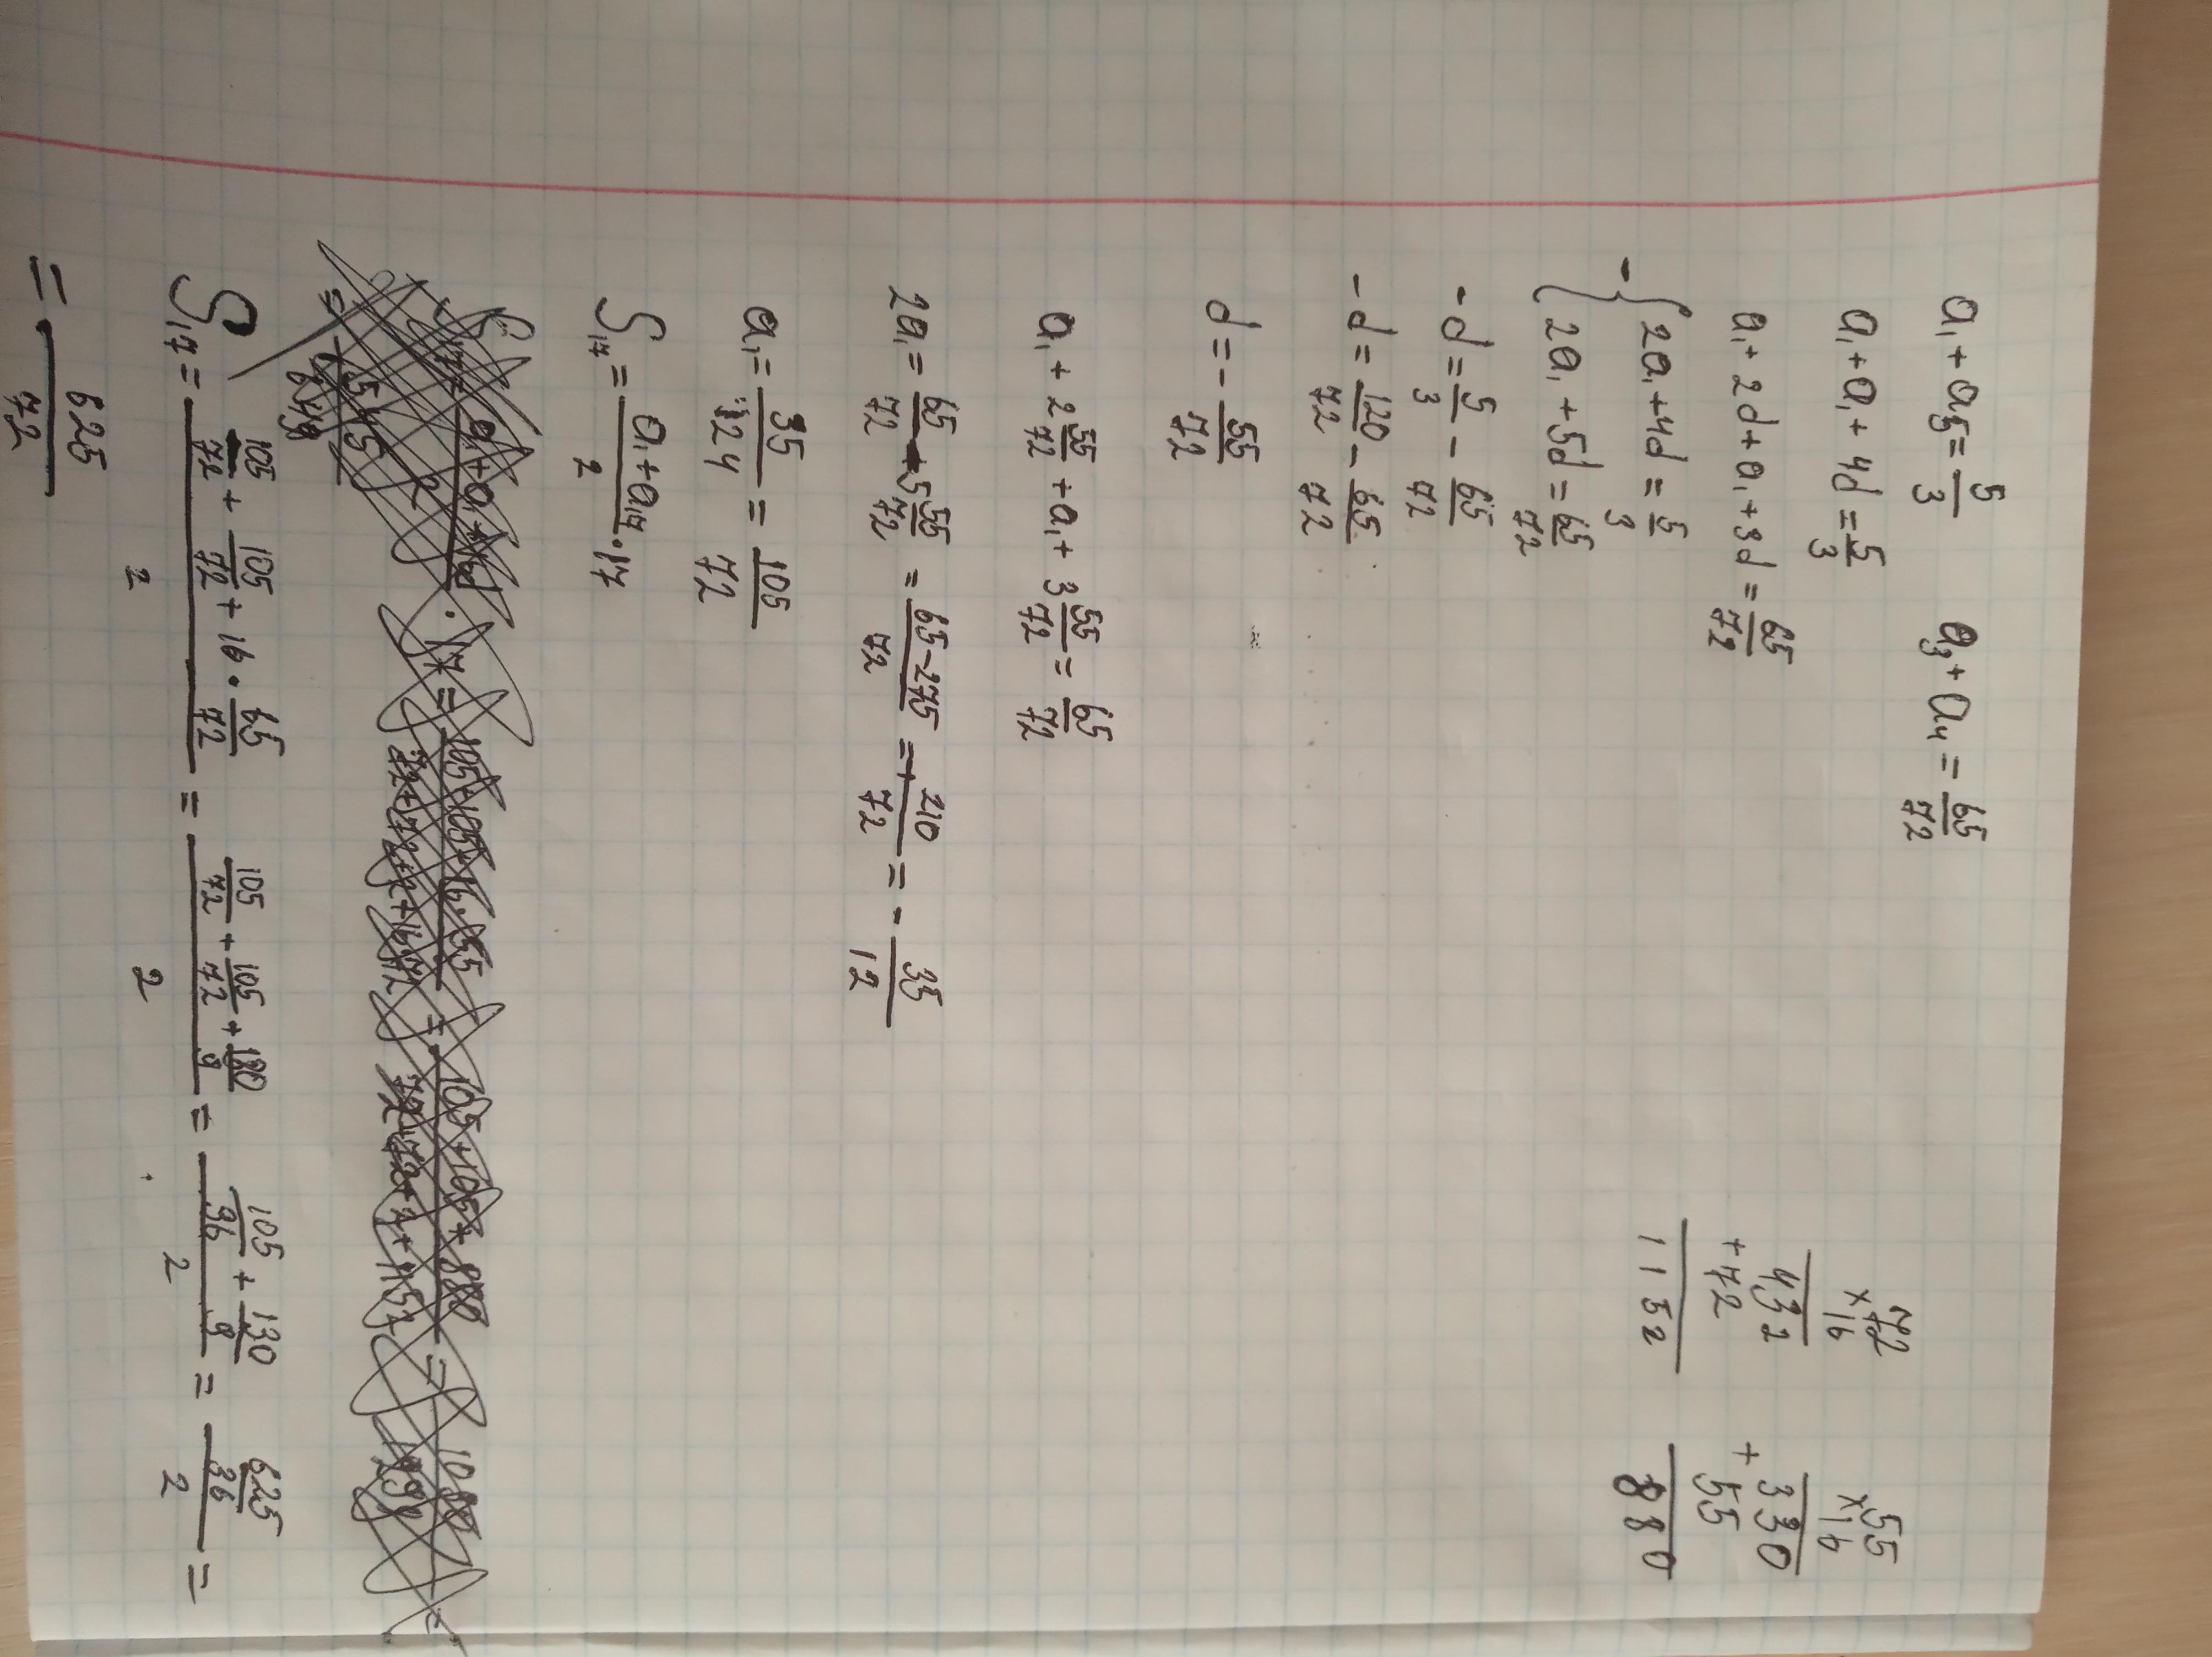 a₁ + a₅ = 5/3 a₃ + a₄ = 65/72
a₁ + a₁ + 4d = 5/3
a₁ + 2d + a₁ + 3d = 65/72
- { 2a₁ + 4d = 5/3
{ 2a₁ + 5d = 65/72
-d = 5/3 - 65/72
-d = 120/72 - 65/72
d = - 55/72
a₁ + 2 55/72 + a₁ + 3 55/72 = 65/72
2a₁ = 65/72 + 5 55/72 = 65-275/72 = + 210/72 = - 35/12
a₁ = 35/24 = 105/72
S₁₇ = a₁ + a₁₇/2 · 17
S₁₇ = 105/72 + 105/72 + 16 · 65/72 / 2 = 105/72 + 105/72 + 130/9 / 2 = 105/36 + 130/9 / 2 = 625/36 / 2 =
= 625/72
72
×16
432
+72
1152
55
×16
330
+55
880